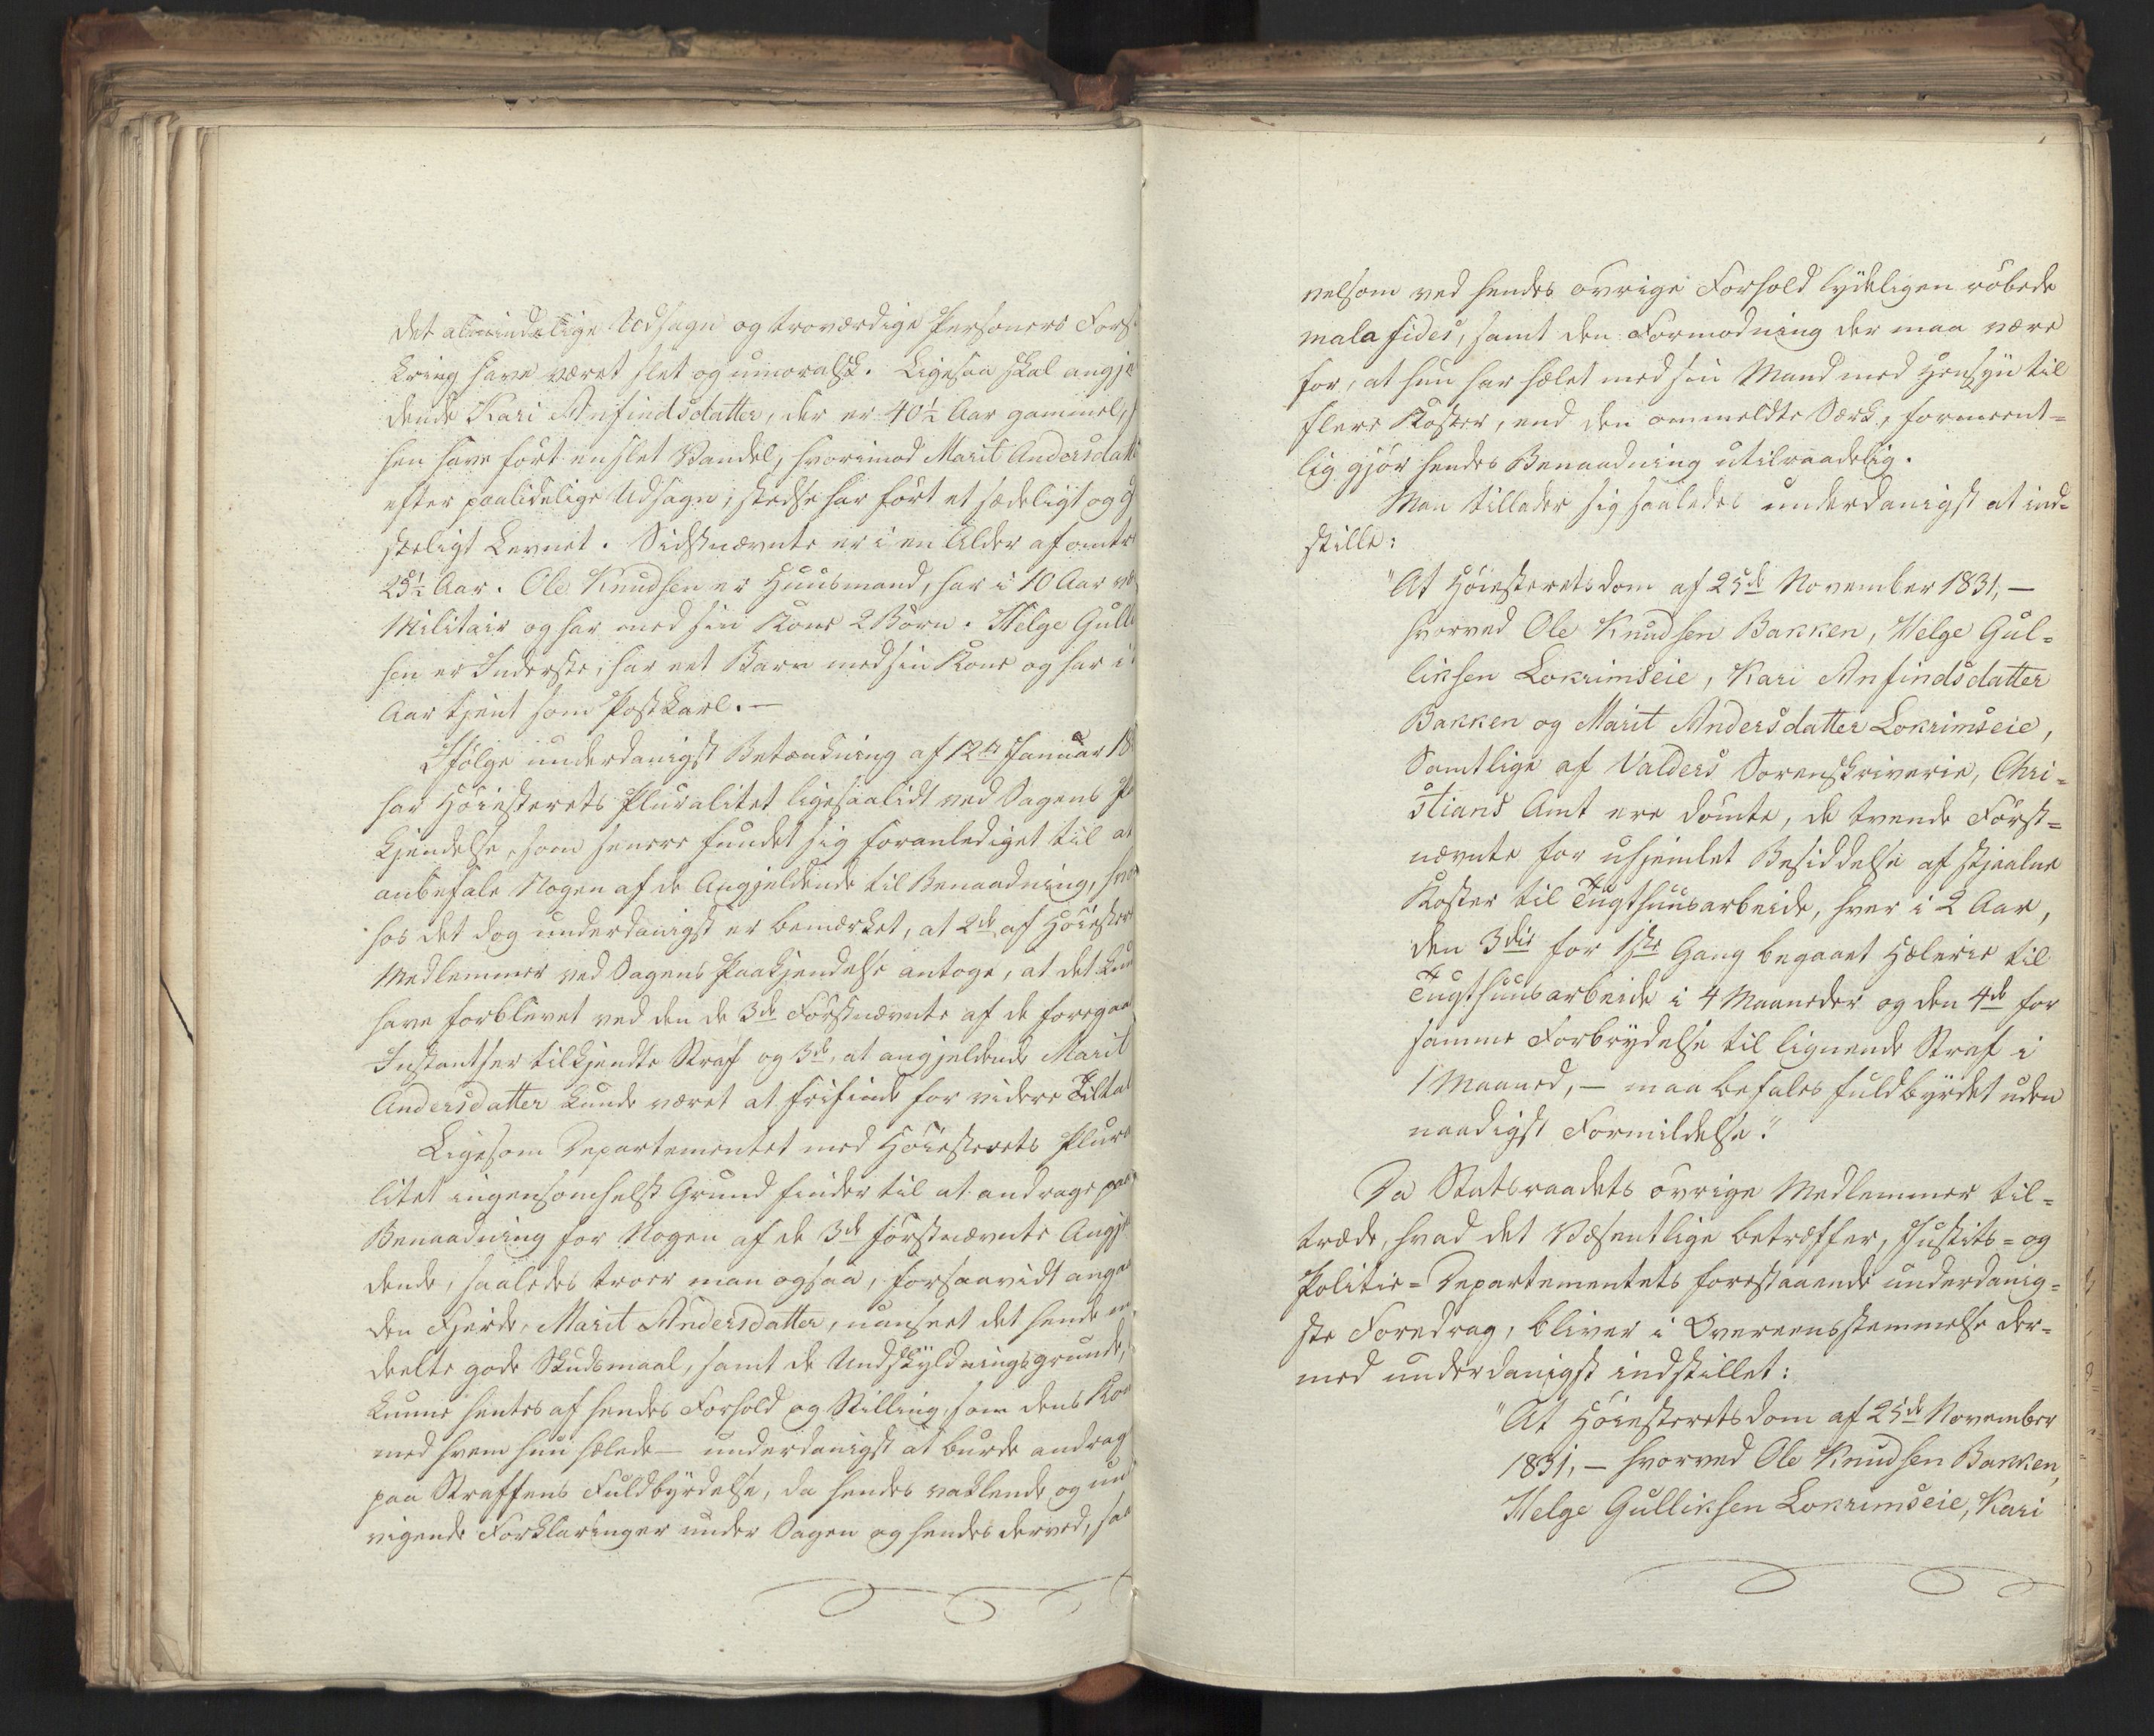 det almindelige Udsagn og troværdige Personers Forsi¬
kring have været slet og umoralsk. Ligesaa skal angjel
dende Kari Anfindsdatter, der er 40½ Aar gammel,
hen have ført en slet Vandel, hvorimod Marit Andersdatt
efter paalidelige Udsagn, stedse har ført et sædeligt og
skeligt Levnet. Sidstnævnte er i en Alder af omtr
25½ Aar. Ole Knudsen er Huusmand, har i 10 Aar væ
Militair og har med sin Kone 2 Børn. Helge Gulli
sen er Inderste, har eet Barn med sin Kone og har i
Aar tjent som Postkarl.—
Ifølge underdanigst Betænkning af 12te Januar 18
har Høiesterets Pluralitet ligesaalidt ved Sagens Pa
kjendelse, som senere fundet sig foranlediget til at
anbefale Nogen af de Angjeldende til Benaadning, hvor
hos det dog underdanigst er bemærket, at 2de af Høiester
Medlemmer ved Sagens Paakjendelse antoge, at det kun
have forblevet ved den de 3de Førstnævnte af de foregaa
Instantser tilkjendte Straf og 3de, at angjeldende Marit
Andersdatter kunde været at frifinde for videre Tiltal
Ligesom Departementet med Høiesterets Plura
litet ingensomhelst Grund finder til at andrage paa
Benaadning for Nogen af de 3de førstnævnte Angjel
dende, saaledes troer man ogsaa, forsaavidt angaa
den Fjerde, Marit Andersdatter, uanseet det hende m
deelte gode Skudsmaal, samt de Undskyldningsgrunde,
kunne hentes af hendes Forhold og Stilling, som dens Ko
med hvem hun hælede— underdanigst at burde andrag
paa Straffens Fuldbyrdelse, da hendes vaklende og un
vigende Forklaringer under Sagen og hendes derved, saa
velsom ved hendes øvrige Forhold tydeligen røbede
mala fides, samt den Formodning der maa være
for, at hun har hælet med sin Mand med Hensyn til
flere Koster, end den ommeldte Særk, formeent=
lig gjør hendes Benaadning utilraadelig.
Man tillader sig saaledes underdanigst at ind=
stille:
"At Høiesteretsdom af 25de November 1831,—
hvorved Ole Knudsen Bakken, Helge Gul=
liksen Lokrimseie, Kari Anfindsdatter
Bakken og Marit Andersdatter Lokrimseie,
Samtlige af Valders Sorenskriverie, Chri=
stians Amt ere dømte, de tvende Først=
nævnte for uhjemlet Besiddelse af stjaalne
Koster til Tugthuusarbeide, hver i 2 Aar,
den 3die for 1ste Gang begaaet Hælerie til
Tugthuusarbeide i 4 Maaneder og den 4de for
samme Forbrydelse til lignende Straf i
1 Maaned,— maa befales fuldbyrdet uden
naadigst Formildelse."
Da Statsraadets øvrige Medlemmer til=
træde, hvad det Væsentlige betræffer, Justits= og
Politie=Departementets forestaaende underdanig=
ste Foredrag, bliver i Overeensstemmelse der=
med underdanigst indstillet:
"At Høiesteretsdom af 25de November
1831,— hvorved Ole Knudsen Bakken,
Helge Gulliksen Lokrimseie, Kari